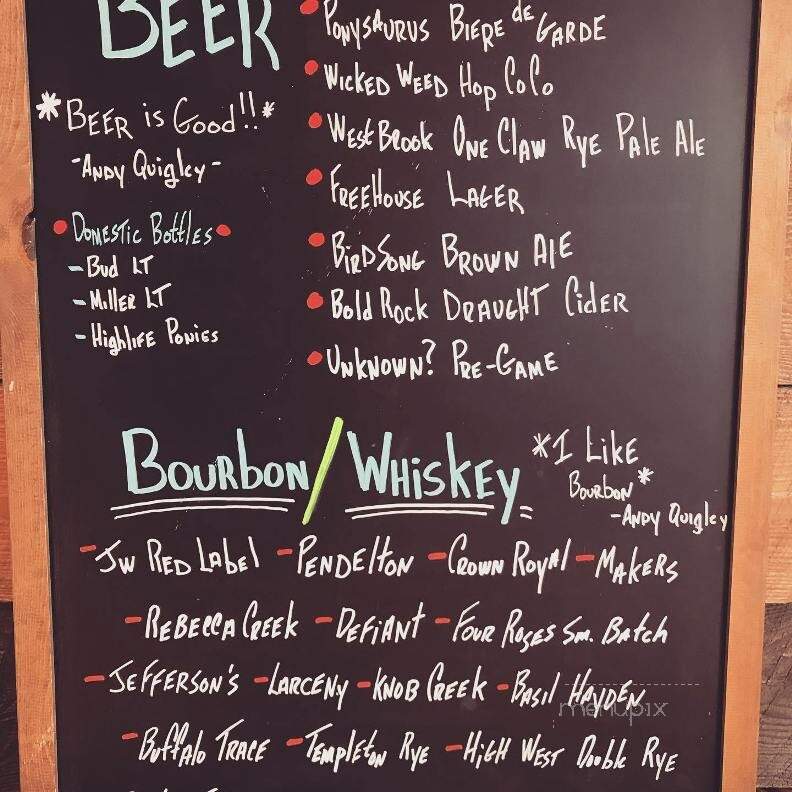 BEER
*BEER is Good!!*
-Andy Quigley-
Domestic Bottles
- Bud LT
- Miller LT
- Highlife Ponies
Ponysaurus Biere de Garde
Wicked Weed Hop CoCo
WestBrook One Claw Rye Pale Ale
FreeHouse Lager
BirdSong Brown Ale
Bold Rock Draught Cider
Unknown? Pre-Game
Bourbon/Whiskey
*I Like
Bourbon*
-Andy Quigley
- JW Red Label - Pendelton - Crown Royal - Makers
- Rebecca Creek - Defiant - Four Roses Sm. Batch
- Jefferson's - Larceny - Knob Creek - Basil Hayden
menupix
- Buffalo Trace - Templeton Rye - High West Double Rye